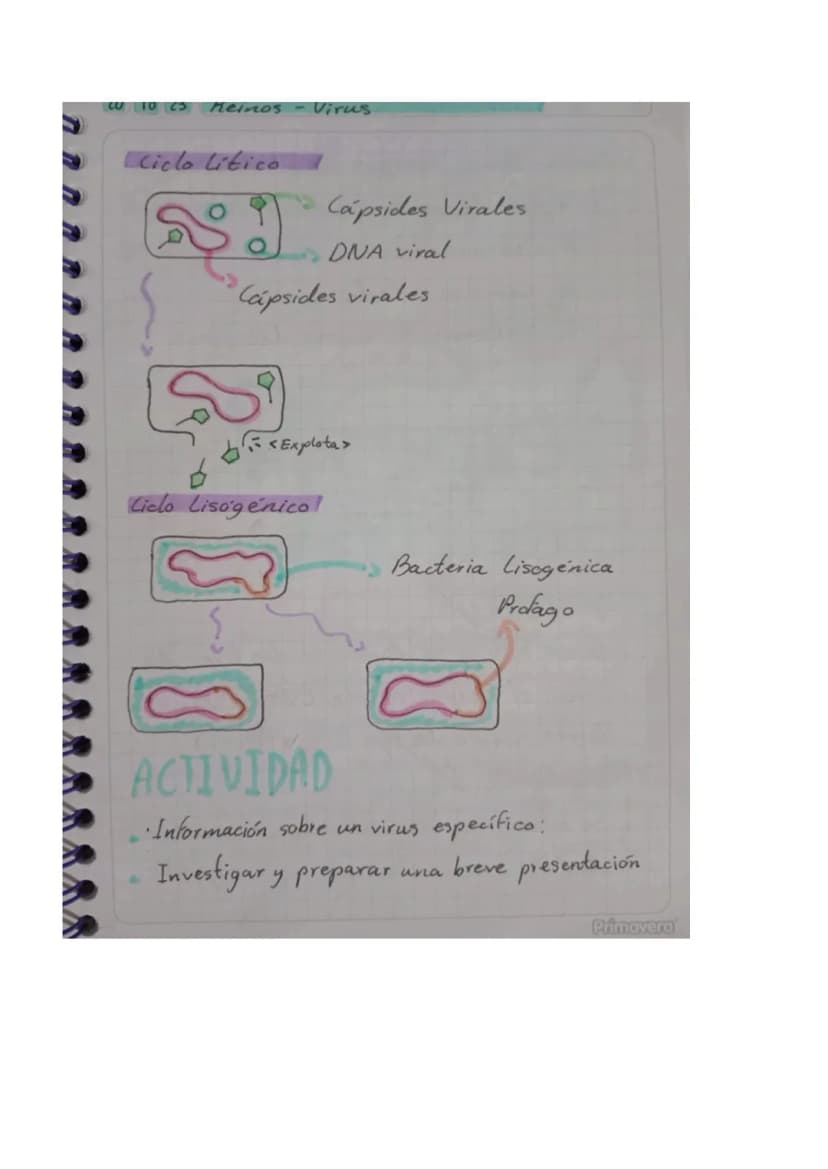 10 23 Reinos - Virus
Ciclo Lítico
Cápsides Virales
DNA viral
Cápsides virales
<Explota>
Ciclo Lisogénico
Bacteria Lisogénica
Profago
ACTIVIDAD
· Información sobre un virus específico:
Investigar y preparar una breve presentación
Primavera